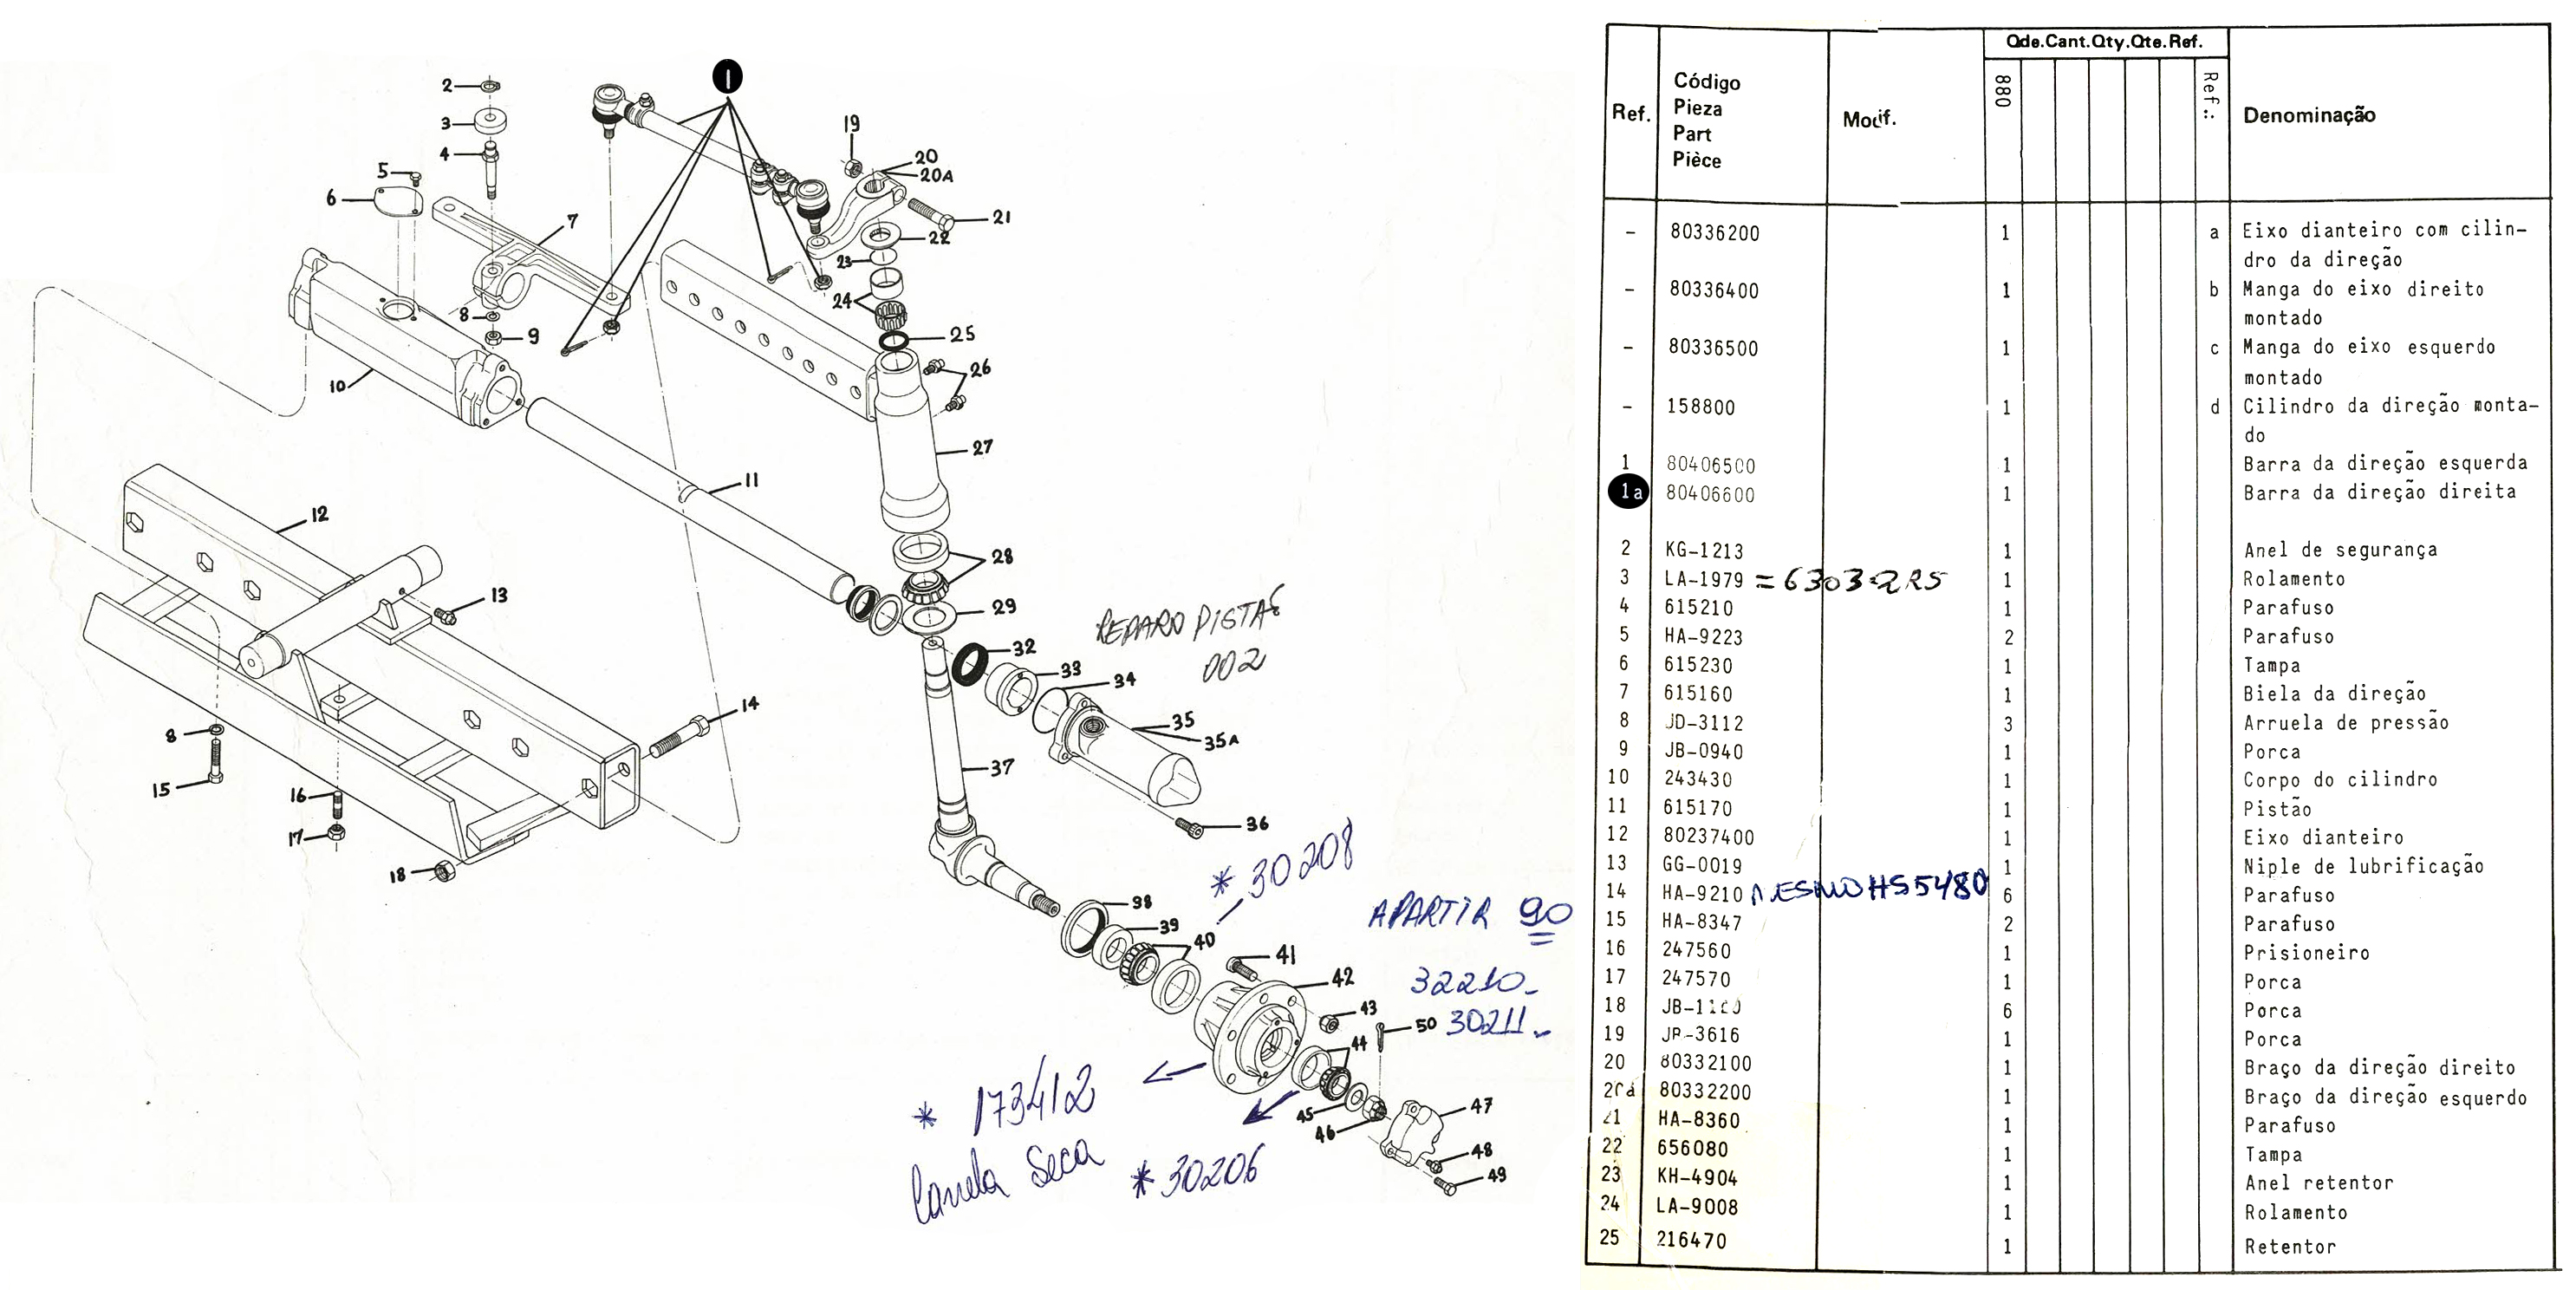 1
2
3
4
5
6
7
8
9
10
11
12
13
14
8
15
16
17
18
19
20
20A
21
22
23
24
25
26
27
28
29
32
33
34
35
35A
36
37
38
39
40
41
42
43
44
45
46
47
48
49
50
REPARO PISTAS
002
* 30208
APARTIR 90
32210-
30211-
* 173412
Canela Seca
* 30206
Qde.Cant.Qty.Qte.Ref.
Ref. Código Pieza Part Pièce Modif. 880 Ref.: Denominação
- 80336200 1 a Eixo dianteiro com cilin-
dro da direção
- 80336400 1 b Manga do eixo direito
montado
- 80336500 1 c Manga do eixo esquerdo
montado
- 158800 1 d Cilindro da direção monta-
do
1 80406500 1 Barra da direção esquerda
1a 80406600 1 Barra da direção direita
2 KG-1213 1 Anel de segurança
3 LA-1979 = 6303-2RS 1 Rolamento
4 615210 1 Parafuso
5 HA-9223 2 Parafuso
6 615230 1 Tampa
7 615160 1 Biela da direção
8 JD-3112 3 Arruela de pressão
9 JB-0940 1 Porca
10 243430 1 Corpo do cilindro
11 615170 1 Pistão
12 80237400 1 Eixo dianteiro
13 GG-0019 1 Niple de lubrificação
14 HA-9210 MESMO HS5480 6 Parafuso
15 HA-8347 2 Parafuso
16 247560 1 Prisioneiro
17 247570 1 Porca
18 6 Porca
19 1 Porca
20 80332100 1 Braço da direção direito
20a 80332200 1 Braço da direção esquerdo
21 HA-8360 1 Parafuso
22 656080 1 Tampa
23 KH-4904 1 Anel retentor
24 LA-9008 1 Rolamento
25 216470 1 Retentor